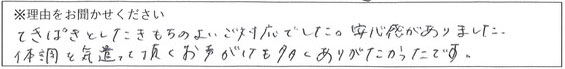 ※理由をお聞かせください
てきぱきとしたきもちのよいご対応でした。安心感がありました。
体調を気遣って頂くお声がけも多くありがたかったです。